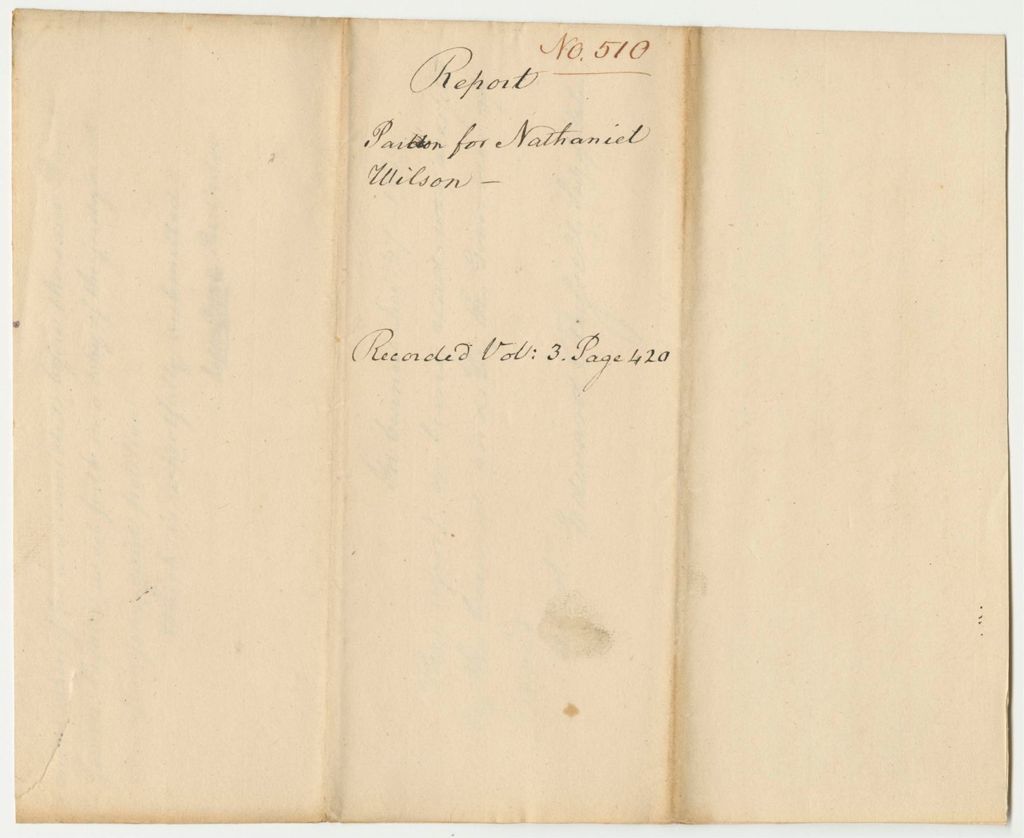 No. 510
Report
Pardon for Nathaniel
Wilson —
Recorded Vol: 3. Page 420